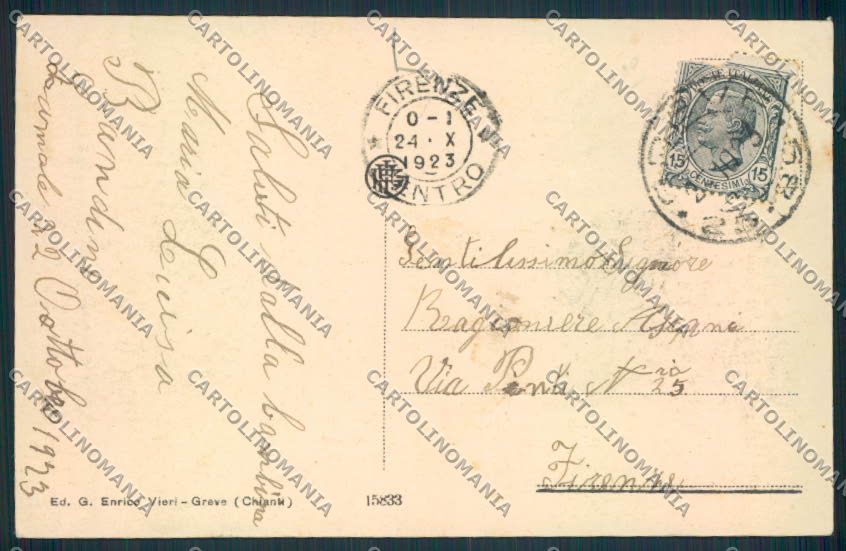 Saluti dalla bambina
Maria Luisa
Bandini
22 Ottobre 1923
FIRENZE
0 - 1
24 · X
1923
CENTRO
POSTE ITALIANE
15 15
CENTESIMI
Gentilissimo Signore
Ragioniere
Via N 25
Firenze
Ed. G. Enrico Vieri - Greve (Chianti)
15833
CARTOLINOMANIA